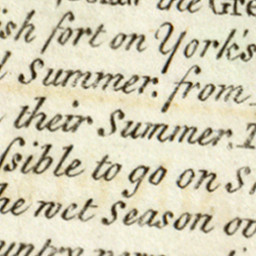 the Gre
ish fort on York's
Summer. from
their Summer.
ſsible to go on S
he wet Season ov